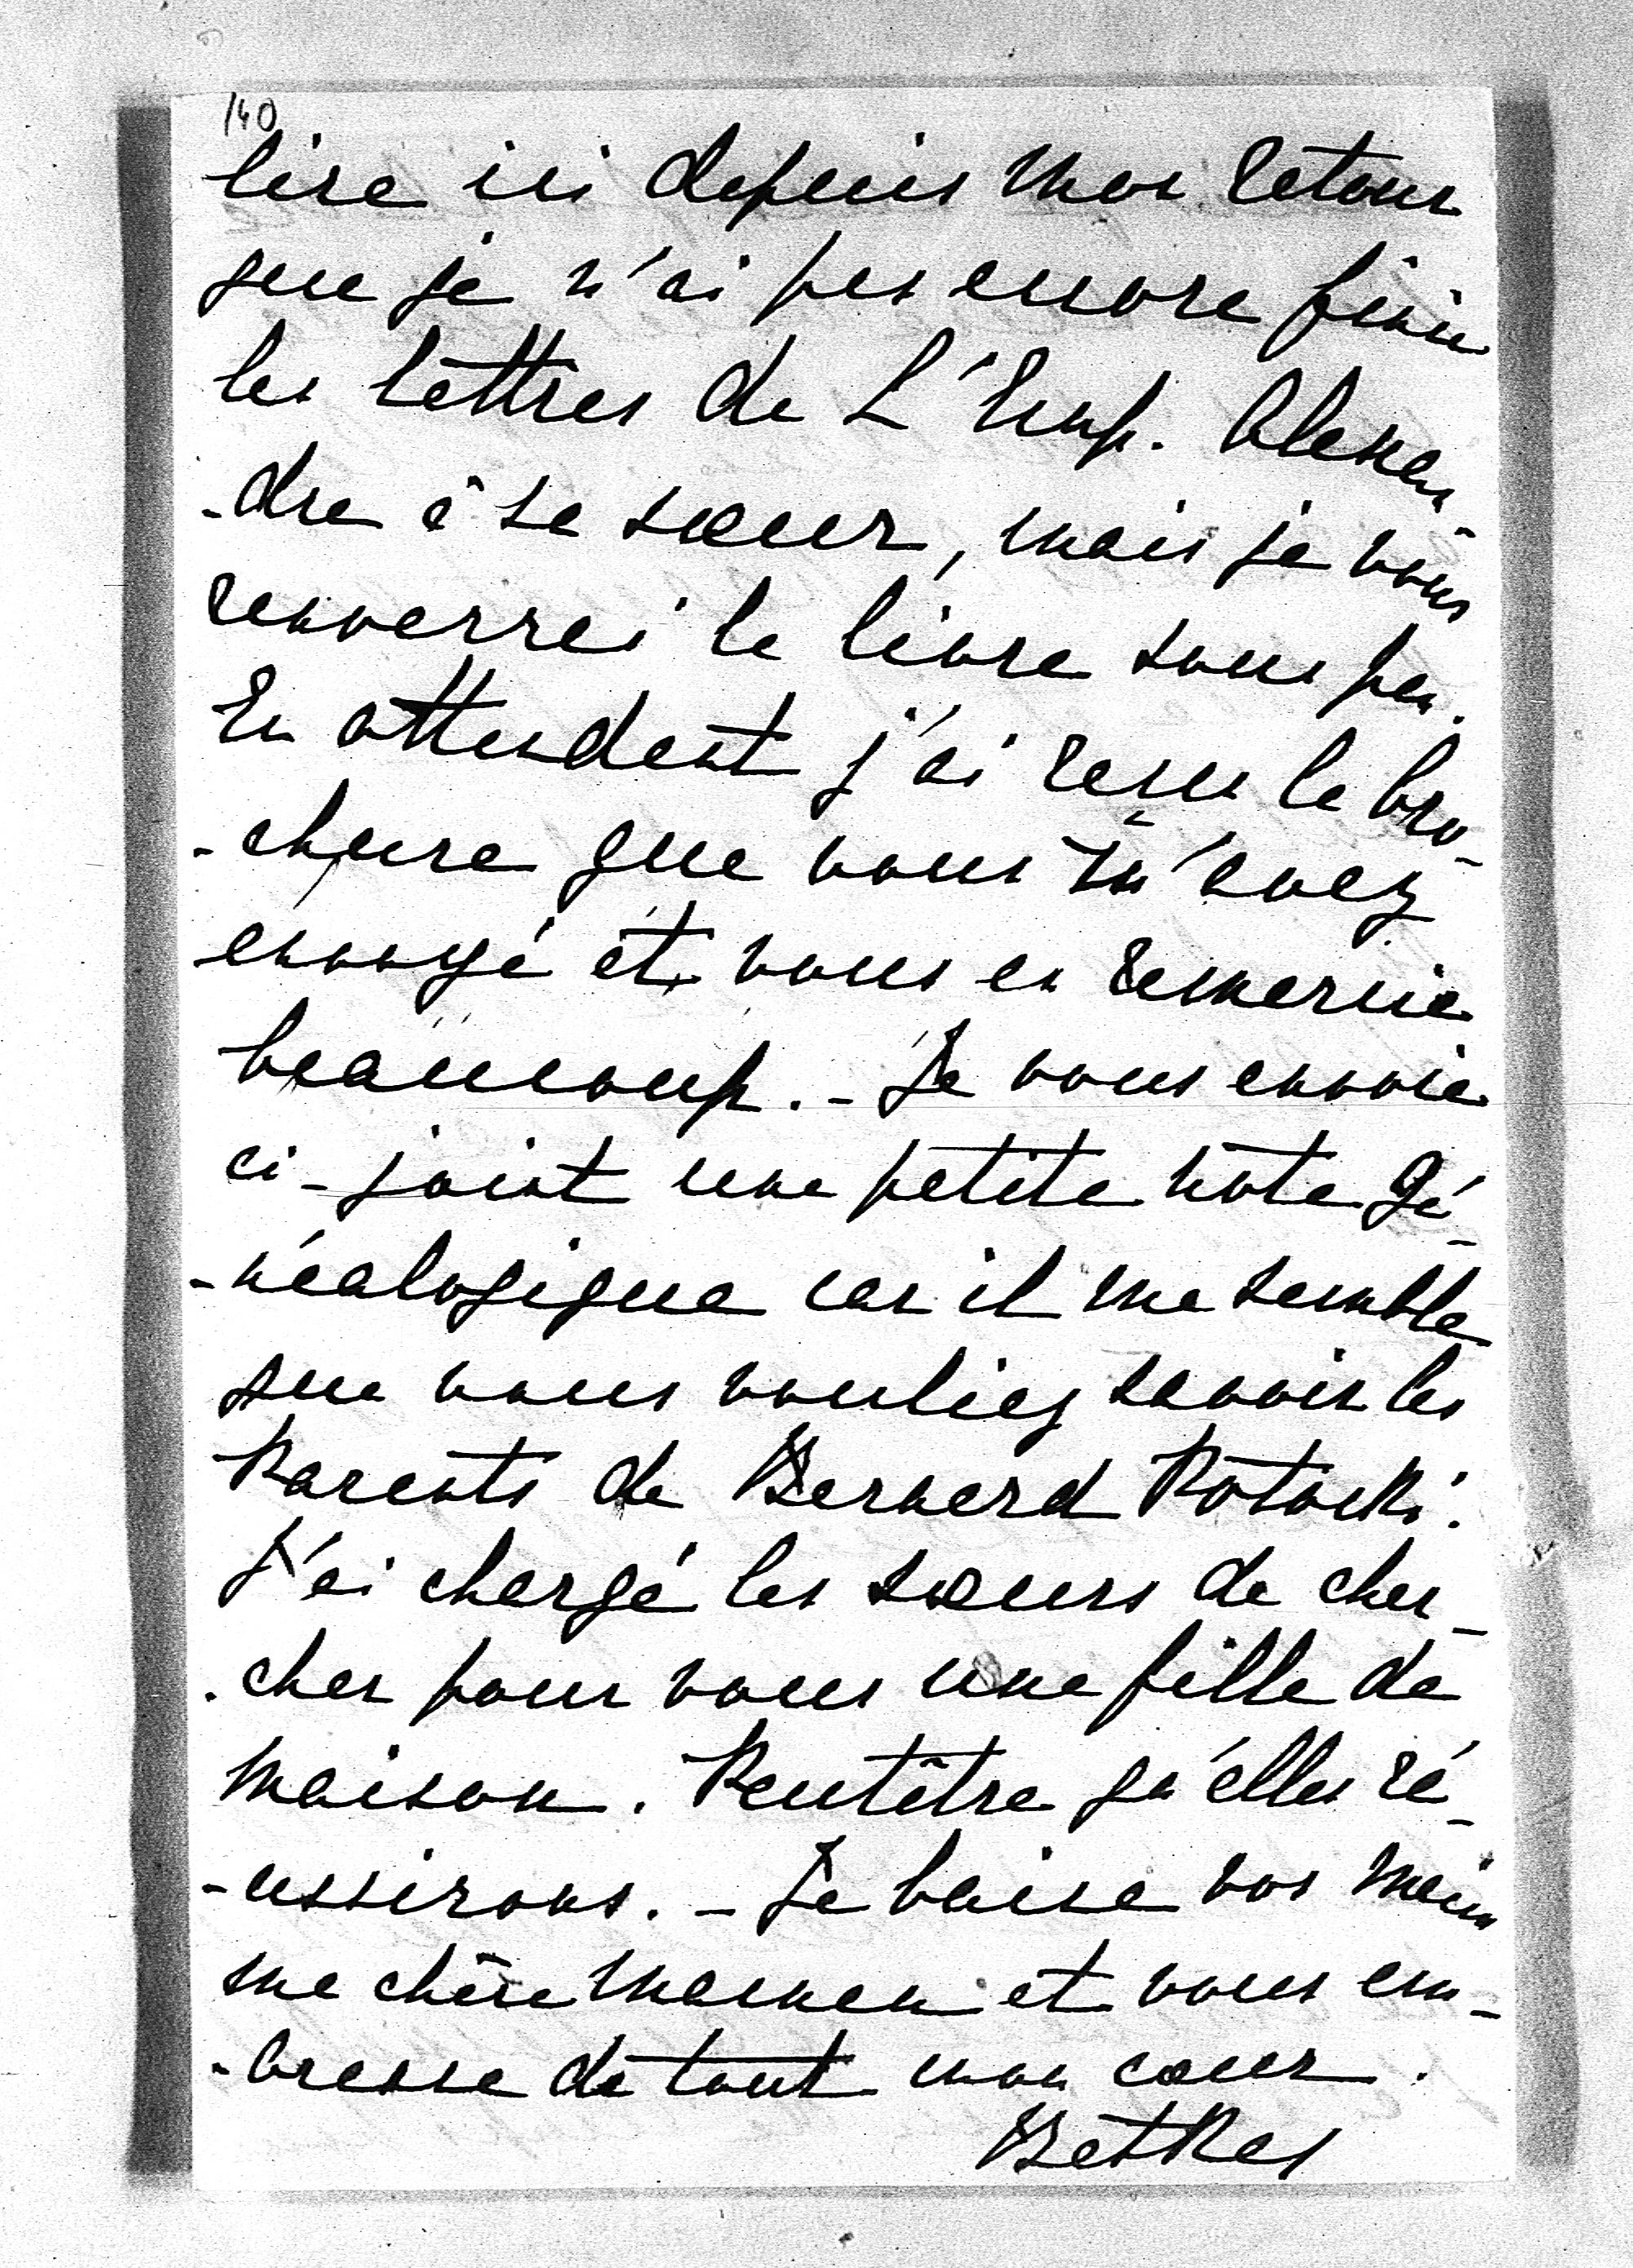 140
lire ici depuis mon retour
que je n'ai pas encore fini
les lettres de L'Emp. Alexan-
-dre à sa sœur, mais je vous
renverrai le livre sous peu.
En attendant j'ai reçu la bro-
-chure que vous m'avez
envoyé et vous en remercie
beaucoup. - Je vous envoie
ci-joint une petite note gé-
-néalogique car il me semble
que vous vouliez savoir les
Parents de Bernard Potocki.
J'ai chargé les sœurs de cher-
-cher pour vous une fille de
maison. Peutêtre qu'elles ré-
-ussirons. - Je baise vos mains
ma chère maman et vous em-
-brasse de tout mon cœur.